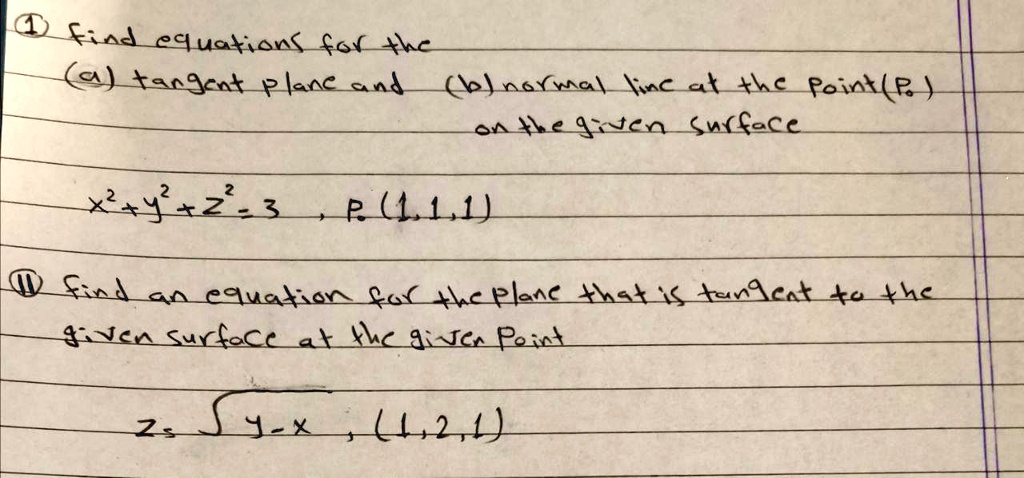 ① Find equations for the
(a) tangent plane and (b) normal line at the Point(P₀)
on the given surface
x²+y²+z²=3 , P₀(1,1,1)
⑪ find an equation for the plane that is tangent to the
given surface at the given Point
z=√y-x , (1,2,1)